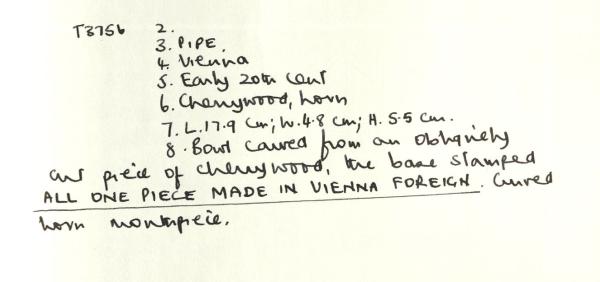 T3756 2.
3. PIPE.
4. Vienna
5. Early 20th cent
6. Cherrywood, horn
7. L.17.9 cm; W.4.8 cm; H. 5.5 cm.
8. Bowl carved from an obliquely
cut piece of cherrywood, the base stamped
ALL ONE PIECE MADE IN VIENNA FOREIGN. Curved
horn mouthpiece.